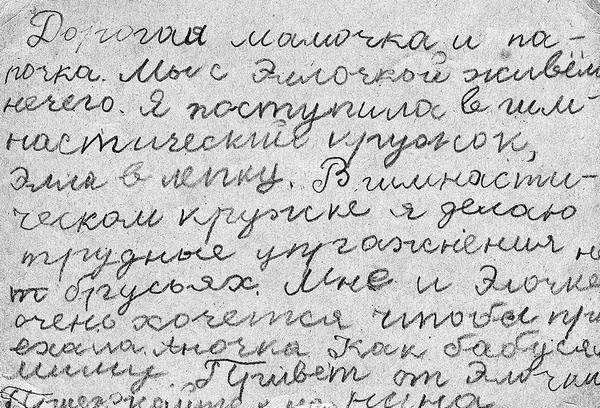 Дорогая мамочка и па-
почка. Мы с Эллочкой живём
нечего. Я поступила в гим-
настический кружок,
Элла в лепку. В гимнасти-
ческом кружке я делаю
трудные упражнения на
брусьях. Мне и Элочке
очень хочется чтобы при
ехала Аночка. Как бабуся
Привет от Элочки